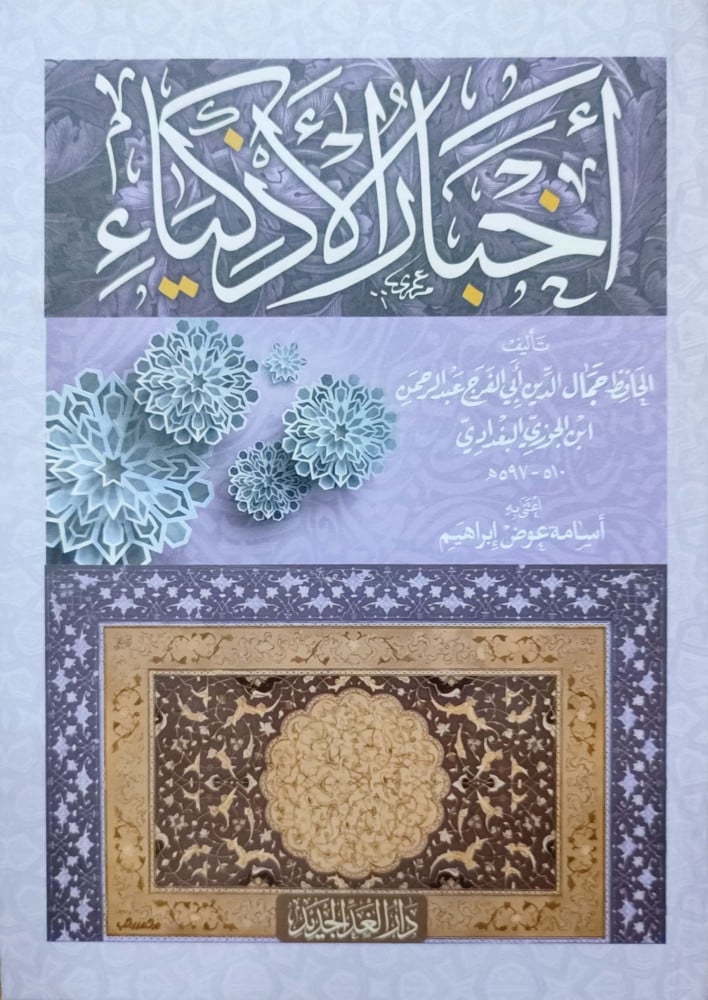 أَخْبَارُ الأَذْكِيَاءِ
تأليف
الحافظ جمال الدين أبي الفرج عبد الرحمن
ابن الجوزي البغدادي
٥١٠ - ٥٩٧ هـ
اعتنى به
أسامة عوض إبراهيم
دار الغد الجديد